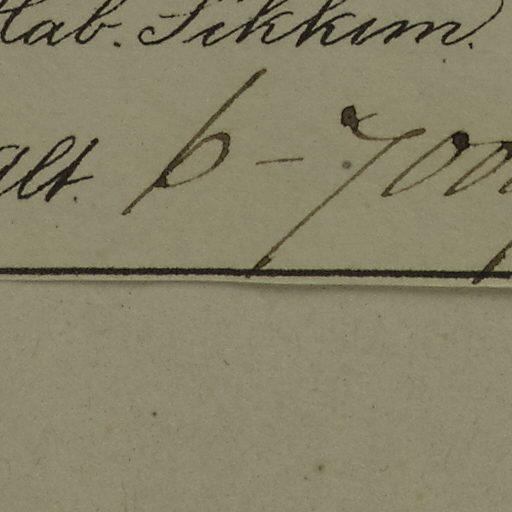 Hab. Sikkim.
alt. 6-700